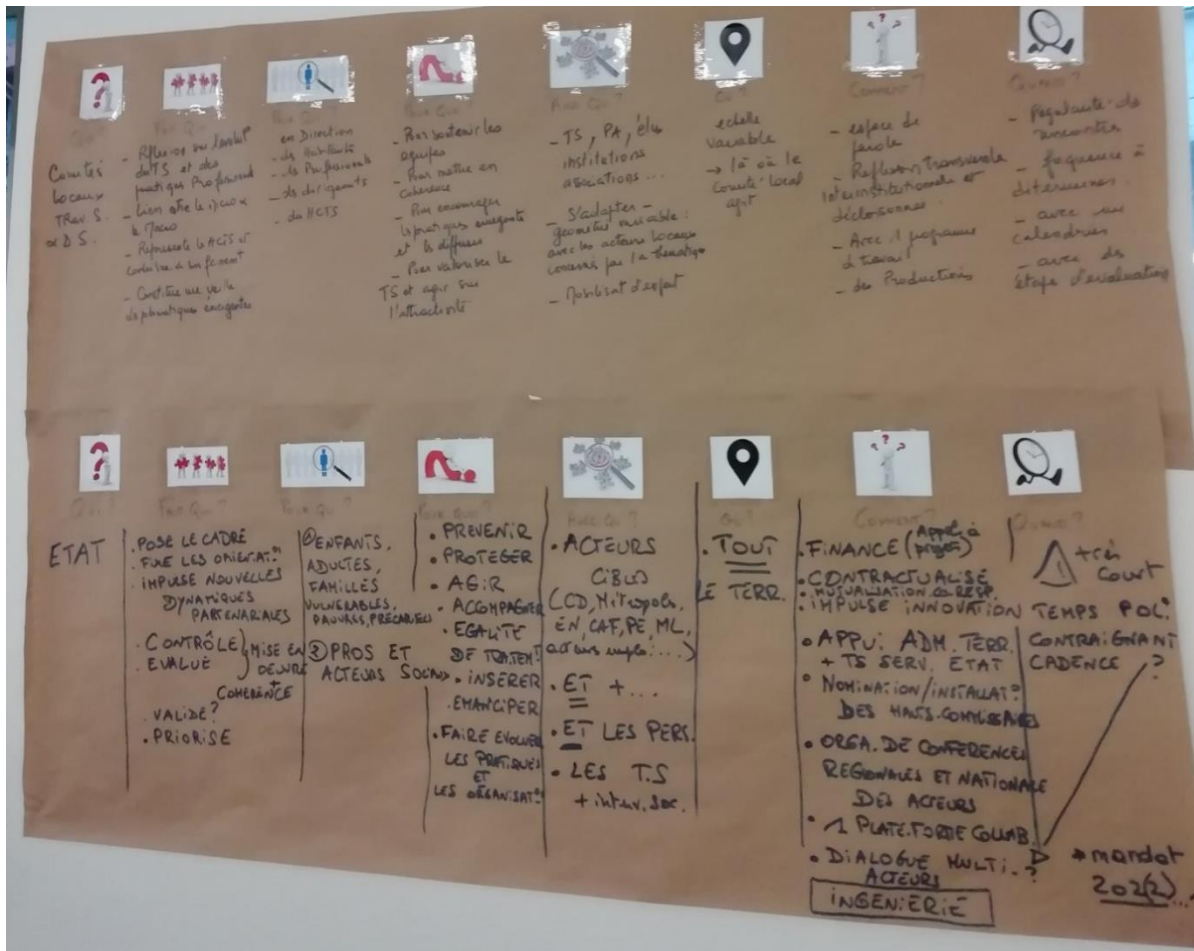 Qui ?
Comités
Locaux
TRav. S.
ou D.S.
Fait Quoi ?
- Réflexion sur l'évolut°
du TS et des
pratiques Professionnel
- Lien entre le micro
le Macro
- Représente le HCTS et
contribue à son
- Constitue une veille
de pratiques émergentes
Pour Qui ?
en Direction
- des Habitants
- des Professionnels
- des dirigeants
- du HCTS
Pour Quoi ?
- Pour soutenir les
équipes
- Pour mettre en
cohérence
- Pour encourager
les pratiques émergentes
et les diffuser
- Pour valoriser le
TS et agir sur
l'attractivité
Avec Qui ?
- TS, PA, élus
institutions
associations ...
- S'adapter -
géométrie variable :
avec les acteurs locaux
concernés par la thématique
- Mobilisat° d'expert
Où ?
echelle
variable
→ là où le
comité local
agit
Comment ?
- espace de
parole
- Reflexion Transversale
Interinstitutionnelle et
décloisonnée
- Avec 1 programme
de travail
- des Productions
Quand ?
- Régularité des
rencontres
- fréquence à
déterminer
- avec un
calendrier
- avec des
étapes d'évaluation
Qui ?
ETAT
Fait Quoi ?
• POSE LE CADRE
• FIXE LES ORIENTAT°
• IMPULSE NOUVELLES
DYNAMIQUES
PARTENARIALES
• CONTRÔLE
• EVALUE
MISE EN
OEUVRE
+
COHERENCE
• VALIDE ?
• PRIORISE
Pour Qui ?
① ENFANTS,
ADULTES,
FAMILLES
VULNERABLES,
PAUVRES, PRECAIRES
② PROS ET
ACTEURS SOCIAUX
Pour Quoi ?
• PREVENIR
• PROTEGER
• AGIR
• ACCOMPAGNER
• EGALITE
DE TRAITEMT
• INSERER
• EMANCIPER
• FAIRE EVOLUER
LES PRATIQUES
ET
LES ORGANISAT°
Avec Qui ?
• ACTEURS
CIBLES
(CD, Métropole,
EN, CAF, PE, ML,
acteurs emploi...)
• ET + ...
• ET LES PERS.
• LES T.S
+ interv. soc.
Où ?
• TOUT
LE TERR.
Comment ?
• FINANCE (Appel à
projets)
• CONTRACTUALISE
• MUTUALISATION, CO RESP.
• IMPULSE INNOVATION
• APPUI ADM. TERR.
+ TS SERV. ETAT
• NOMINATION/INSTALLAT°
DES HAUTS-COMMISSAIRES
• ORGA. DE CONFERENCES
REGIONALES ET NATIONALE
DES ACTEURS
• 1 PLATE.FORME COLLAB.
• DIALOGUE MULTI-
ACTEURS
INGENIERIE
Quand ?
+ très
court
TEMPS POL.
CONTRAIGNANT
CADENCE
?
?
→ mandat
202(2)...